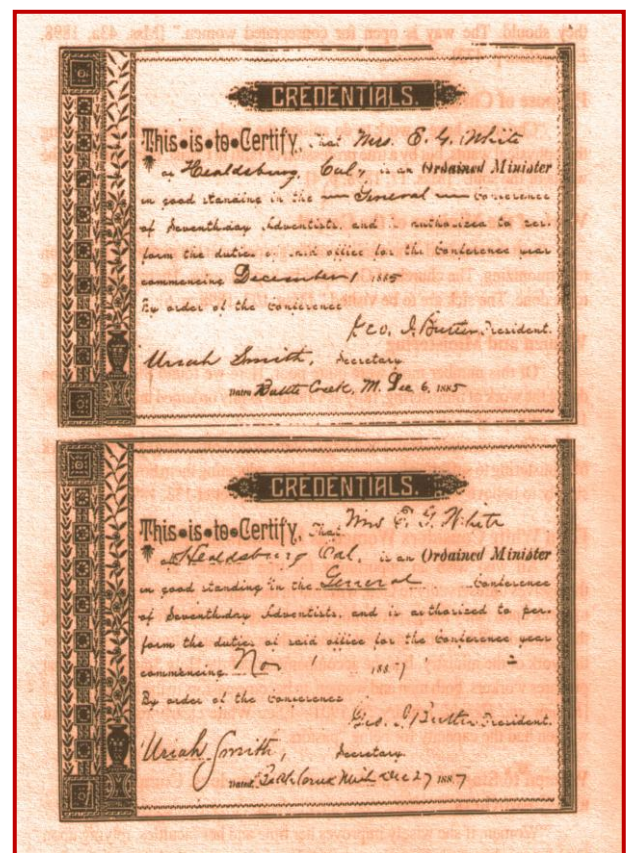 CREDENTIALS.
This is to Certify, That Mrs. E. G. White
of Healdsburg, Cal., is an Ordained Minister
in good standing in the General Conference
of Seventh-day Adventists, and authorized to per-
form the duties of said office for the Conference year
commencing December 1 1885
By order of the Conference
Geo. I. Butler, President.
Uriah Smith, Secretary
Dated Battle Creek, M. Dec 6, 1885
CREDENTIALS.
This is to Certify, That Mrs E. G. White
of Healdsburg Cal, is an Ordained Minister
in good standing in the General Conference
of Seventh-day Adventists, and is authorized to per-
form the duties of said office for the Conference year
commencing Nov 1 1887
By order of the Conference
Geo. I. Butler President.
Uriah Smith, Secretary
Dated, Battle Creek Mich Dec 27 1887